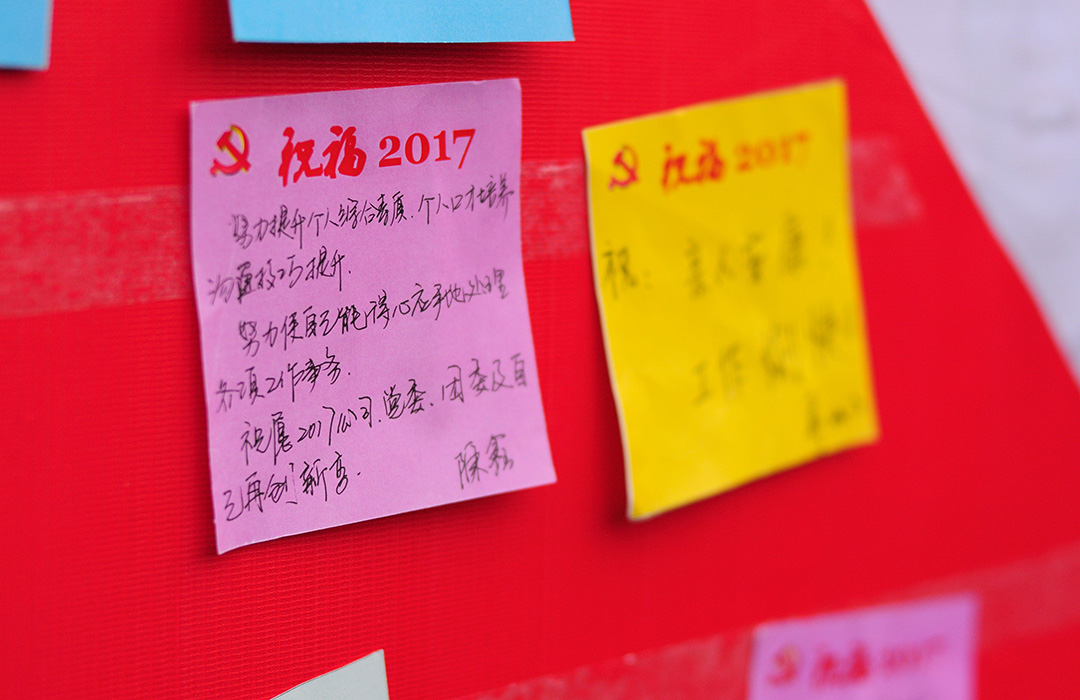 祝福 2017
努力提升个人综合素质、个人口才培养
沟通技巧提升.
努力使自己能得心应手地处理
各项工作事务.
祝愿2017公司、党委、团委及自
己再创新高.
陈鑫
祝福 2017
祝: 家人安康!
工作愉快!
祝福 2017